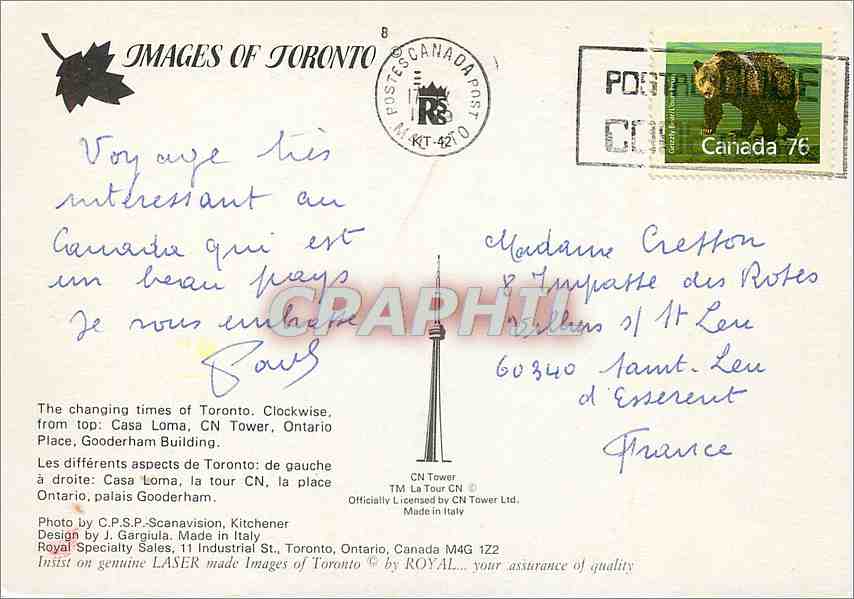 IMAGES OF TORONTO
8
POSTES CANADA POST
KT-42
POSTAL CODE
Grizzly Bear
Canada 76
Voyage très
intéressant au
Canada qui est
un beau pays
Je vous embrasse
Madame Cresson
8 Impasse des Roses
Villiers s/ St Leu
60340 Saint-Leu
d'Esserent
France
CPAPHIL
The changing times of Toronto. Clockwise,
from top: Casa Loma, CN Tower, Ontario
Place, Gooderham Building.
Les différents aspects de Toronto: de gauche
à droite: Casa Loma, la tour CN, la place
Ontario, palais Gooderham.
CN Tower
TM La Tour CN ©
Officially Licensed by CN Tower Ltd.
Made in Italy
Photo by C.P.S.P.-Scanavision, Kitchener
Design by J. Gargiula. Made in Italy
Royal Specialty Sales, 11 Industrial St., Toronto, Ontario, Canada M4G 1Z2
Insist on genuine LASER made Images of Toronto © by ROYAL... your assurance of quality